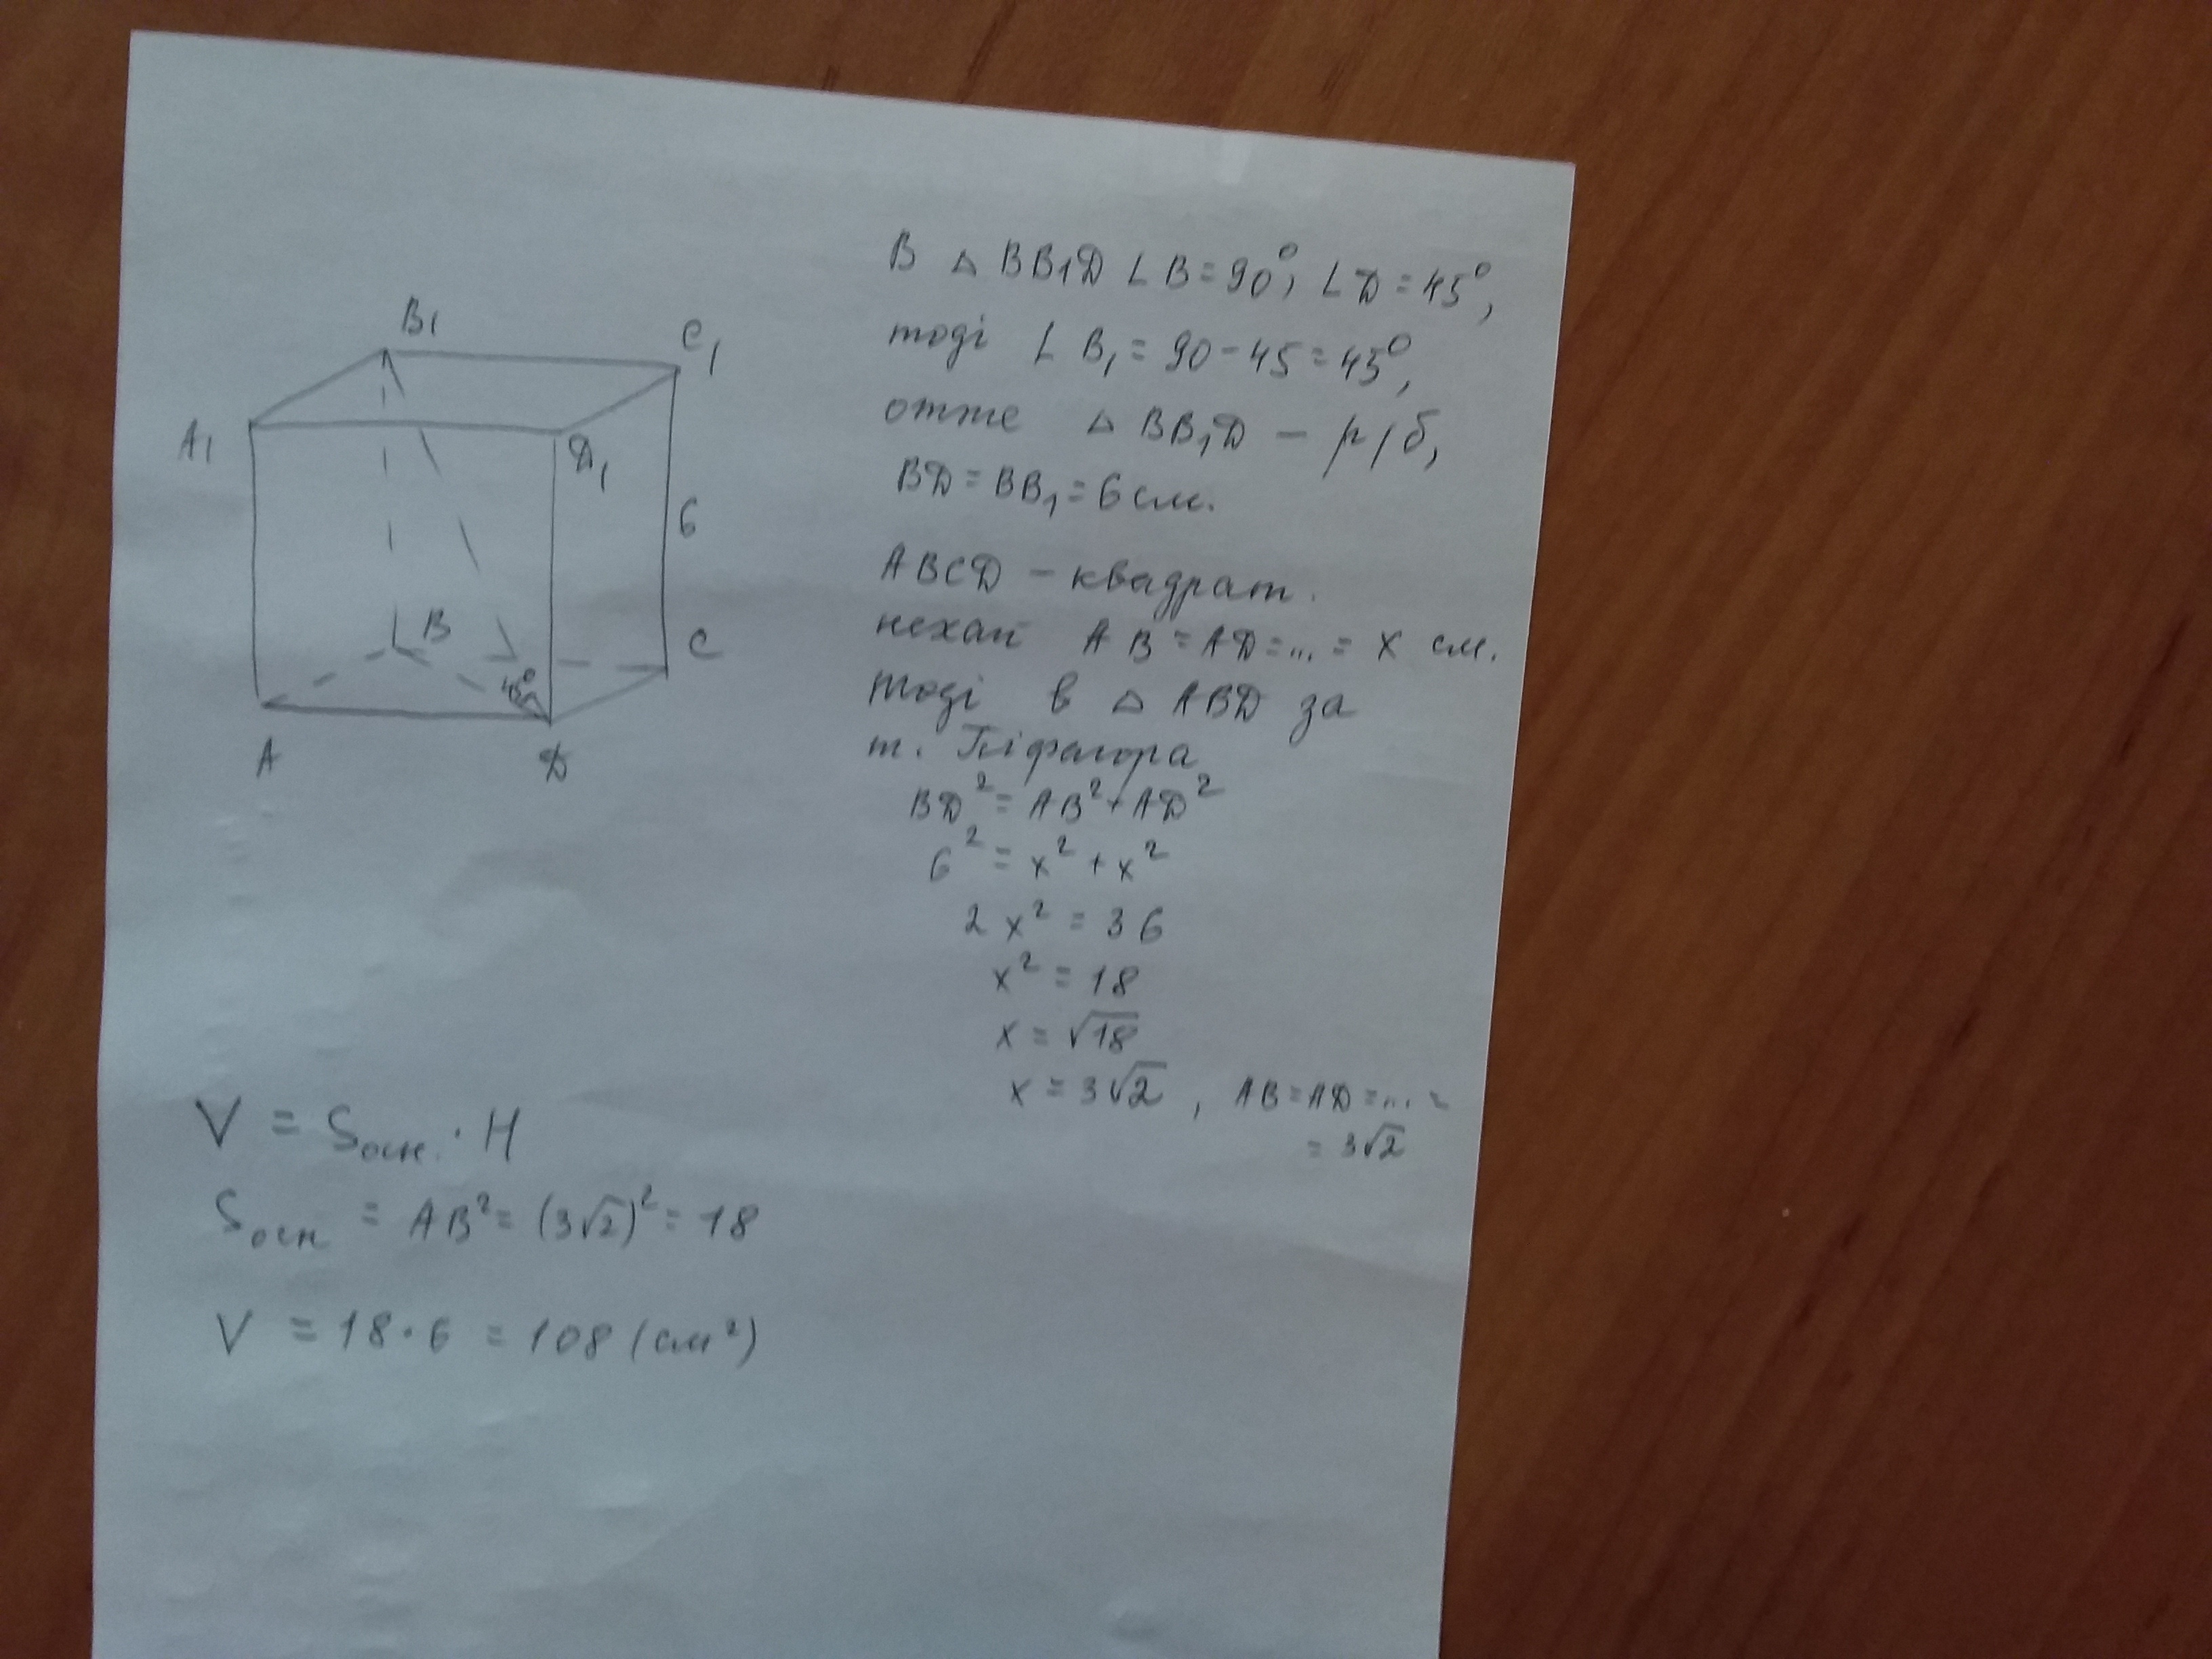 B₁
C₁
A₁
D₁
6
B
C
45°
A
D
В △ BB₁D ∠B=90°, ∠D=45°,
тоді ∠B₁=90-45=45°,
отже △ BB₁D - р/б,
BD=BB₁=6см.
ABCD - квадрат.
нехай AB=AD=...=x см.
Тоді в △ ABD за
т. Піфагора
BD²=AB²+AD²
6²=x²+x²
2x²=36
x²=18
x=√18
x=3√2, AB=AD=...=
=3√2
V=Sосн.·H
Sосн=AB²=(3√2)²=18
V=18·6=108(см²)